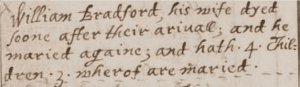 William Bradford, his wife dyed
soone after their arivall; and he
maried againe; and hath .4. Chil-
dren .3. wherof are maried.